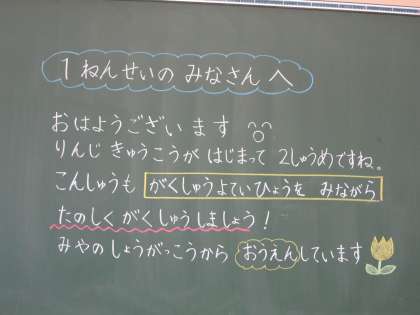 1ねんせいの みなさんへ
おはようございます
りんじ きゅうこうが はじまって 2しゅうめですね。
こんしゅうも がくしゅうよていひょうを みながら
たのしく がくしゅうしましょう!
みやの しょうがっこうから おうえんしています